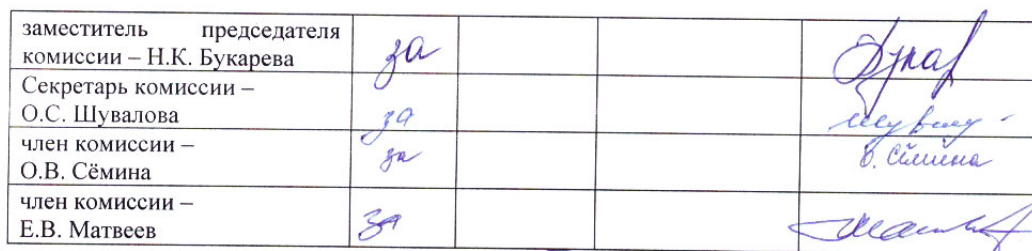 заместитель председателя
комиссии – Н.К. Букарева
за
Секретарь комиссии –
О.С. Шувалова
за
член комиссии –
О.В. Сёмина
за
О. Сёмина
член комиссии –
Е.В. Матвеев
за